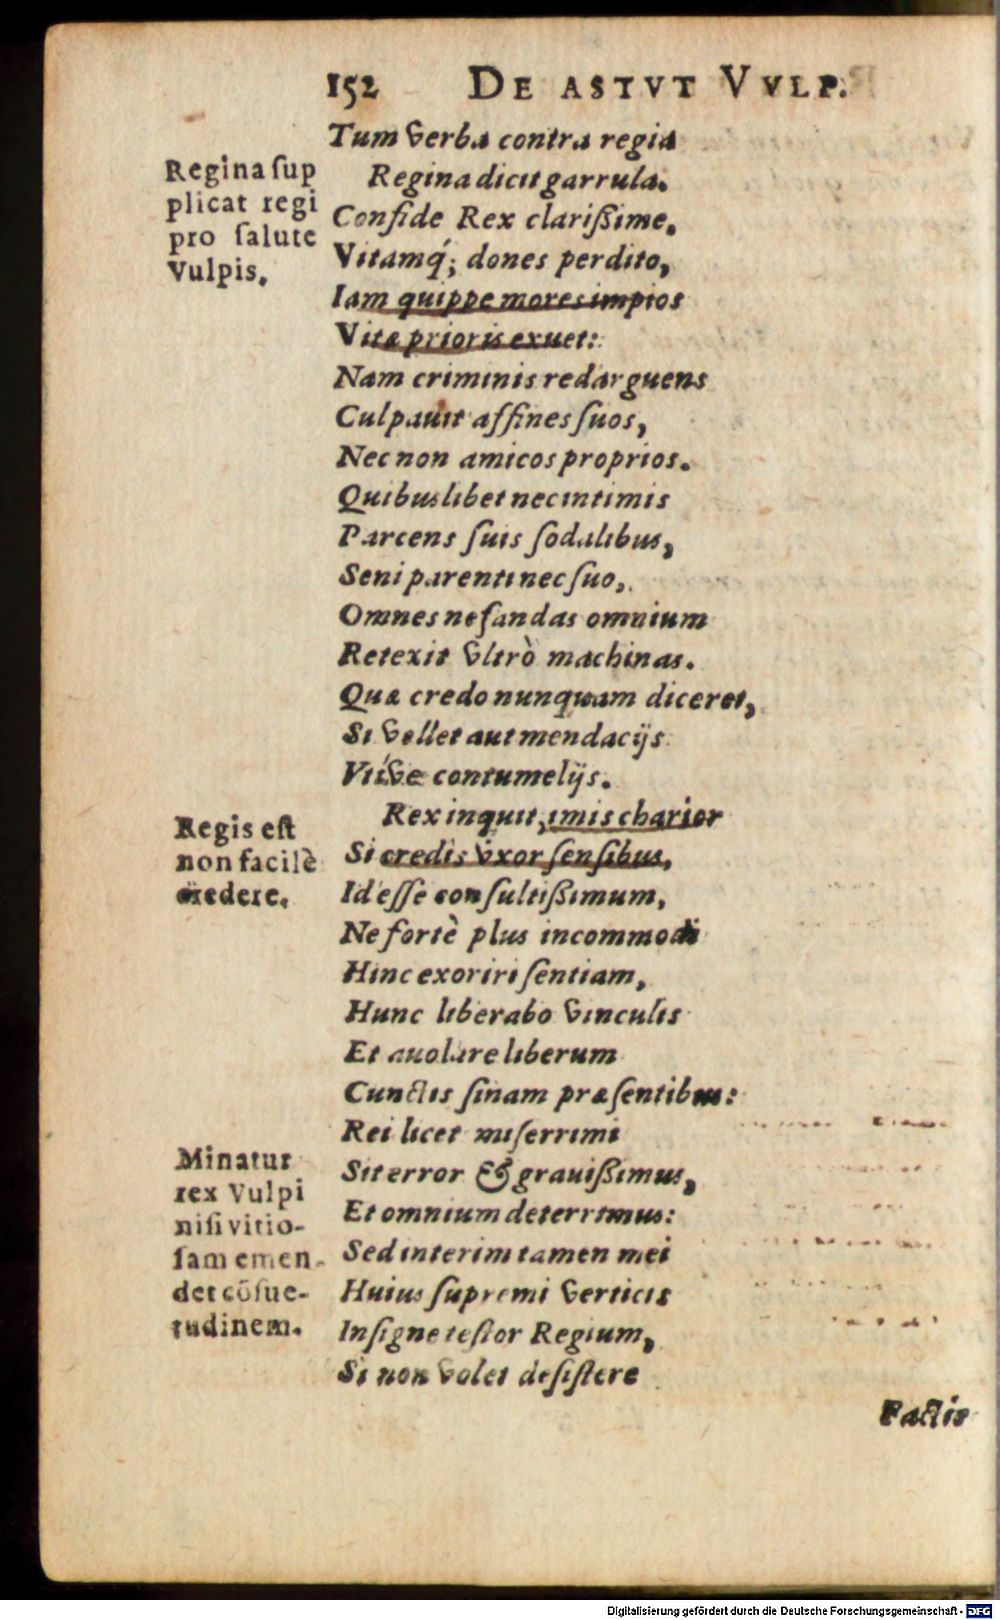 152 DE ASTVT VVLP.
Tum verba contra regia
Regina dicit garrula.
Regina ſup
plicat regi
pro ſalute
Vulpis.
Confide Rex clarißime.
Vitamq́; dones perdito,
Iam quippe mores impios
Vitæ prioris exuet:
Nam criminis redarguens
Culpauit affines ſuos,
Nec non amicos proprios.
Quibuslibet nec intimis
Parcens ſuis ſodalibus,
Seni parenti nec ſuo,
Omnes nefandas omnium
Retexit vltrò machinas.
Quæ credo nunquam diceret,
Si vellet aut mendacijs
Vtíve contumelijs.
Rex inquit, imis charior
Regis eſt
non facilè
credere.
Si credis vxor ſenſibus,
Id eſſe conſultißimum,
Ne fortè plus incommodi
Hinc exoriri ſentiam,
Hunc liberabo vinculis
Et auolare liberum
Cunctis ſinam præſentibus:
Rei licet miſerrimi
Minatur
rex Vulpi
niſi vitio-
ſam emen-
det cõſue-
tudinem.
Sit error & grauißimus,
Et omnium deterrimus:
Sed interim tamen mei
Huius ſupremi verticis
Inſigne teſtor Regium,
Si non volet deſiſtere
Factis
Digitalisierung gefördert durch die Deutsche Forschungsgemeinschaft - DFG